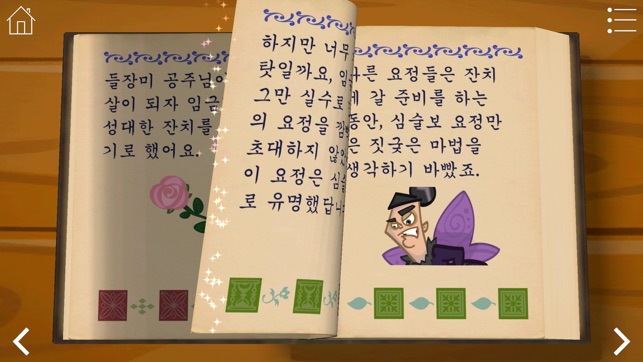 들장미 공주님이
살이 되자 임금
성대한 잔치를
기로 했어요.
하지만 너무
탓일까요,
그만 실수로
의 요정을
초대하지
이 요정은
로 유명했답니
다른 요정들은 잔치
에 갈 준비를 하는
동안, 심술보 요정만
은 짓궂은 마법을
생각하기 바빴죠.